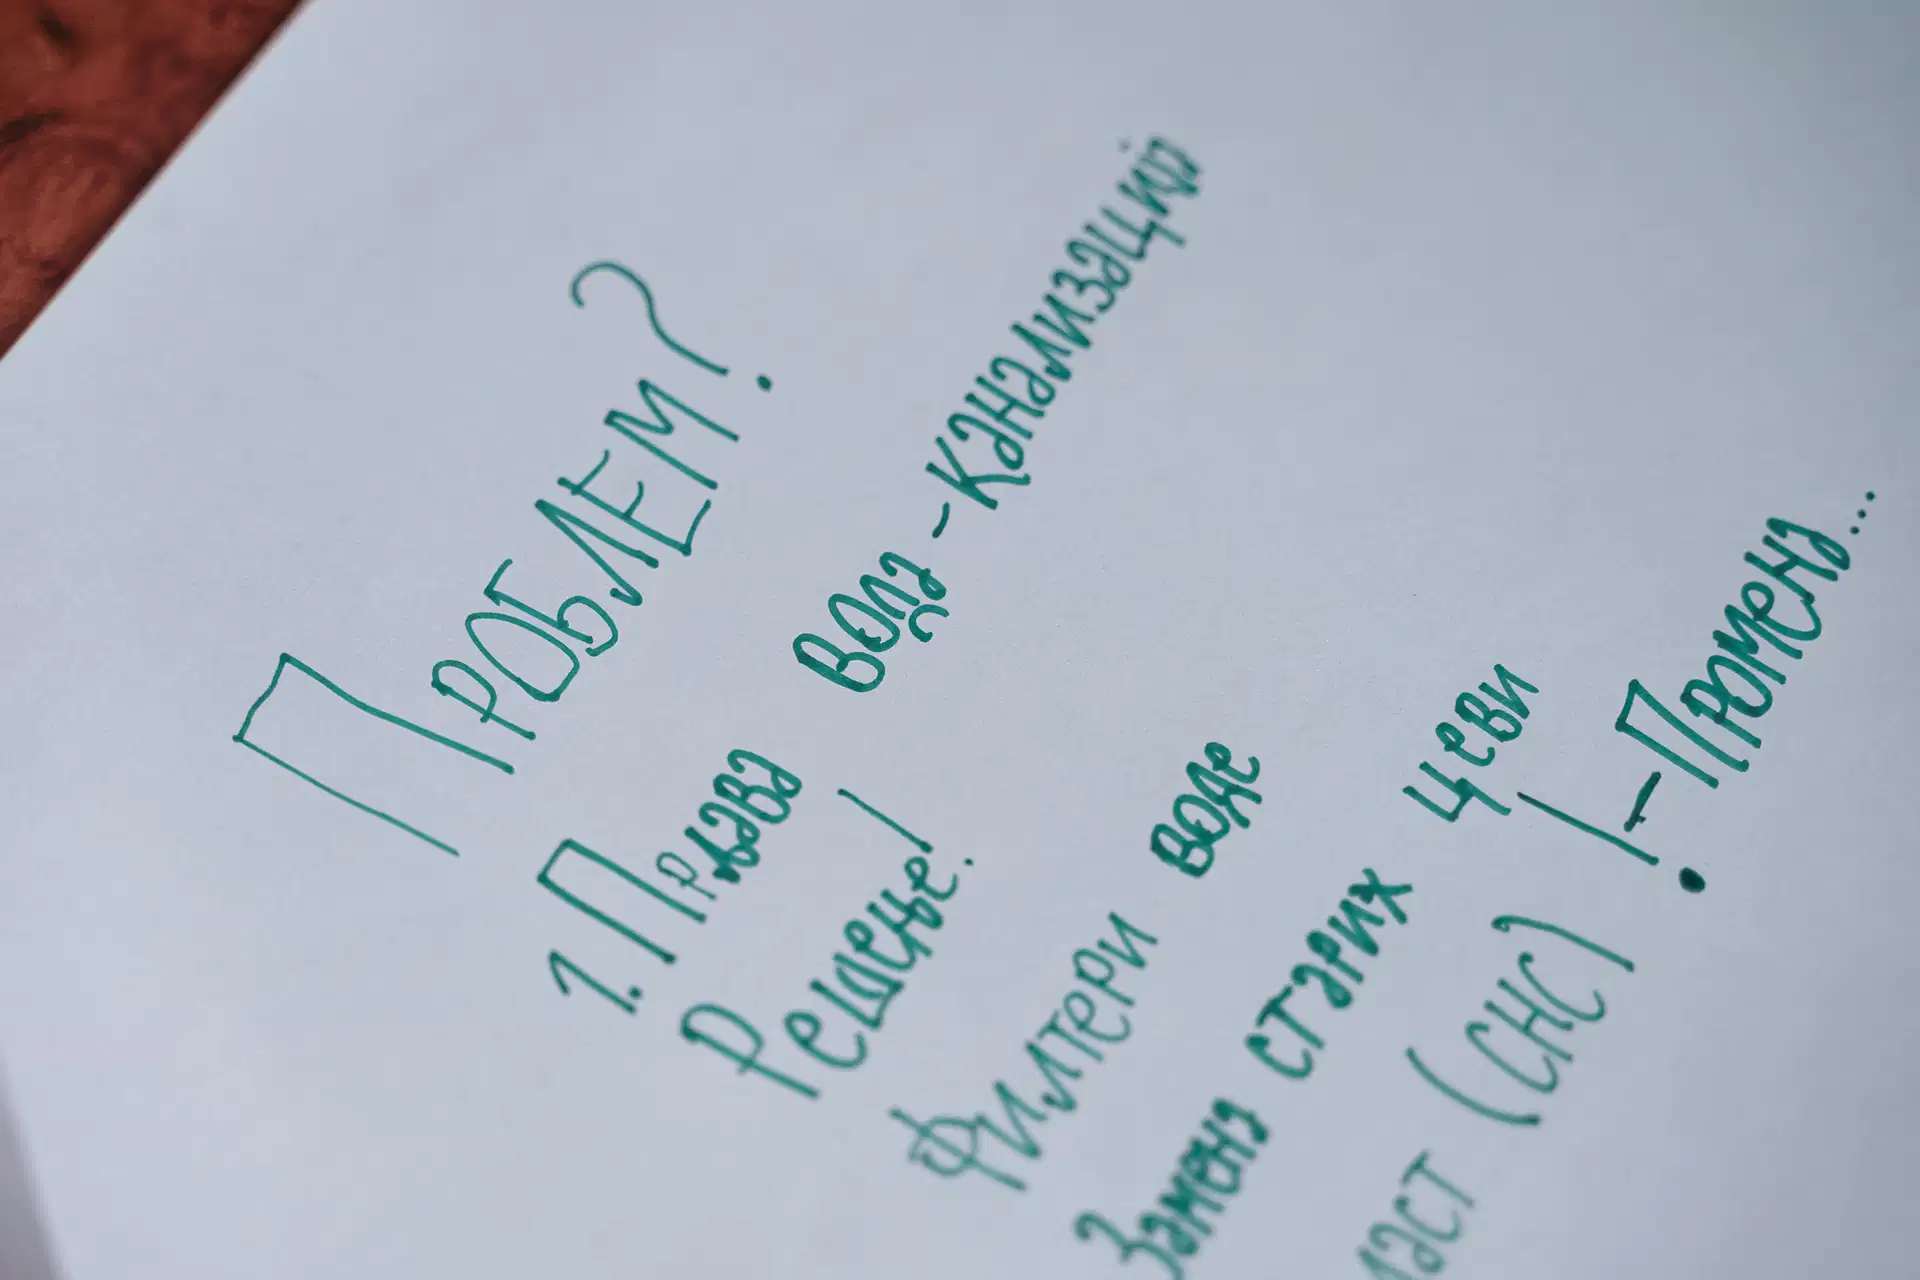 Проблем?
1. Прљава вода - Канализациja
Решење!
Филтери воде
Замена старих цеви
(СНС)! - Промена...